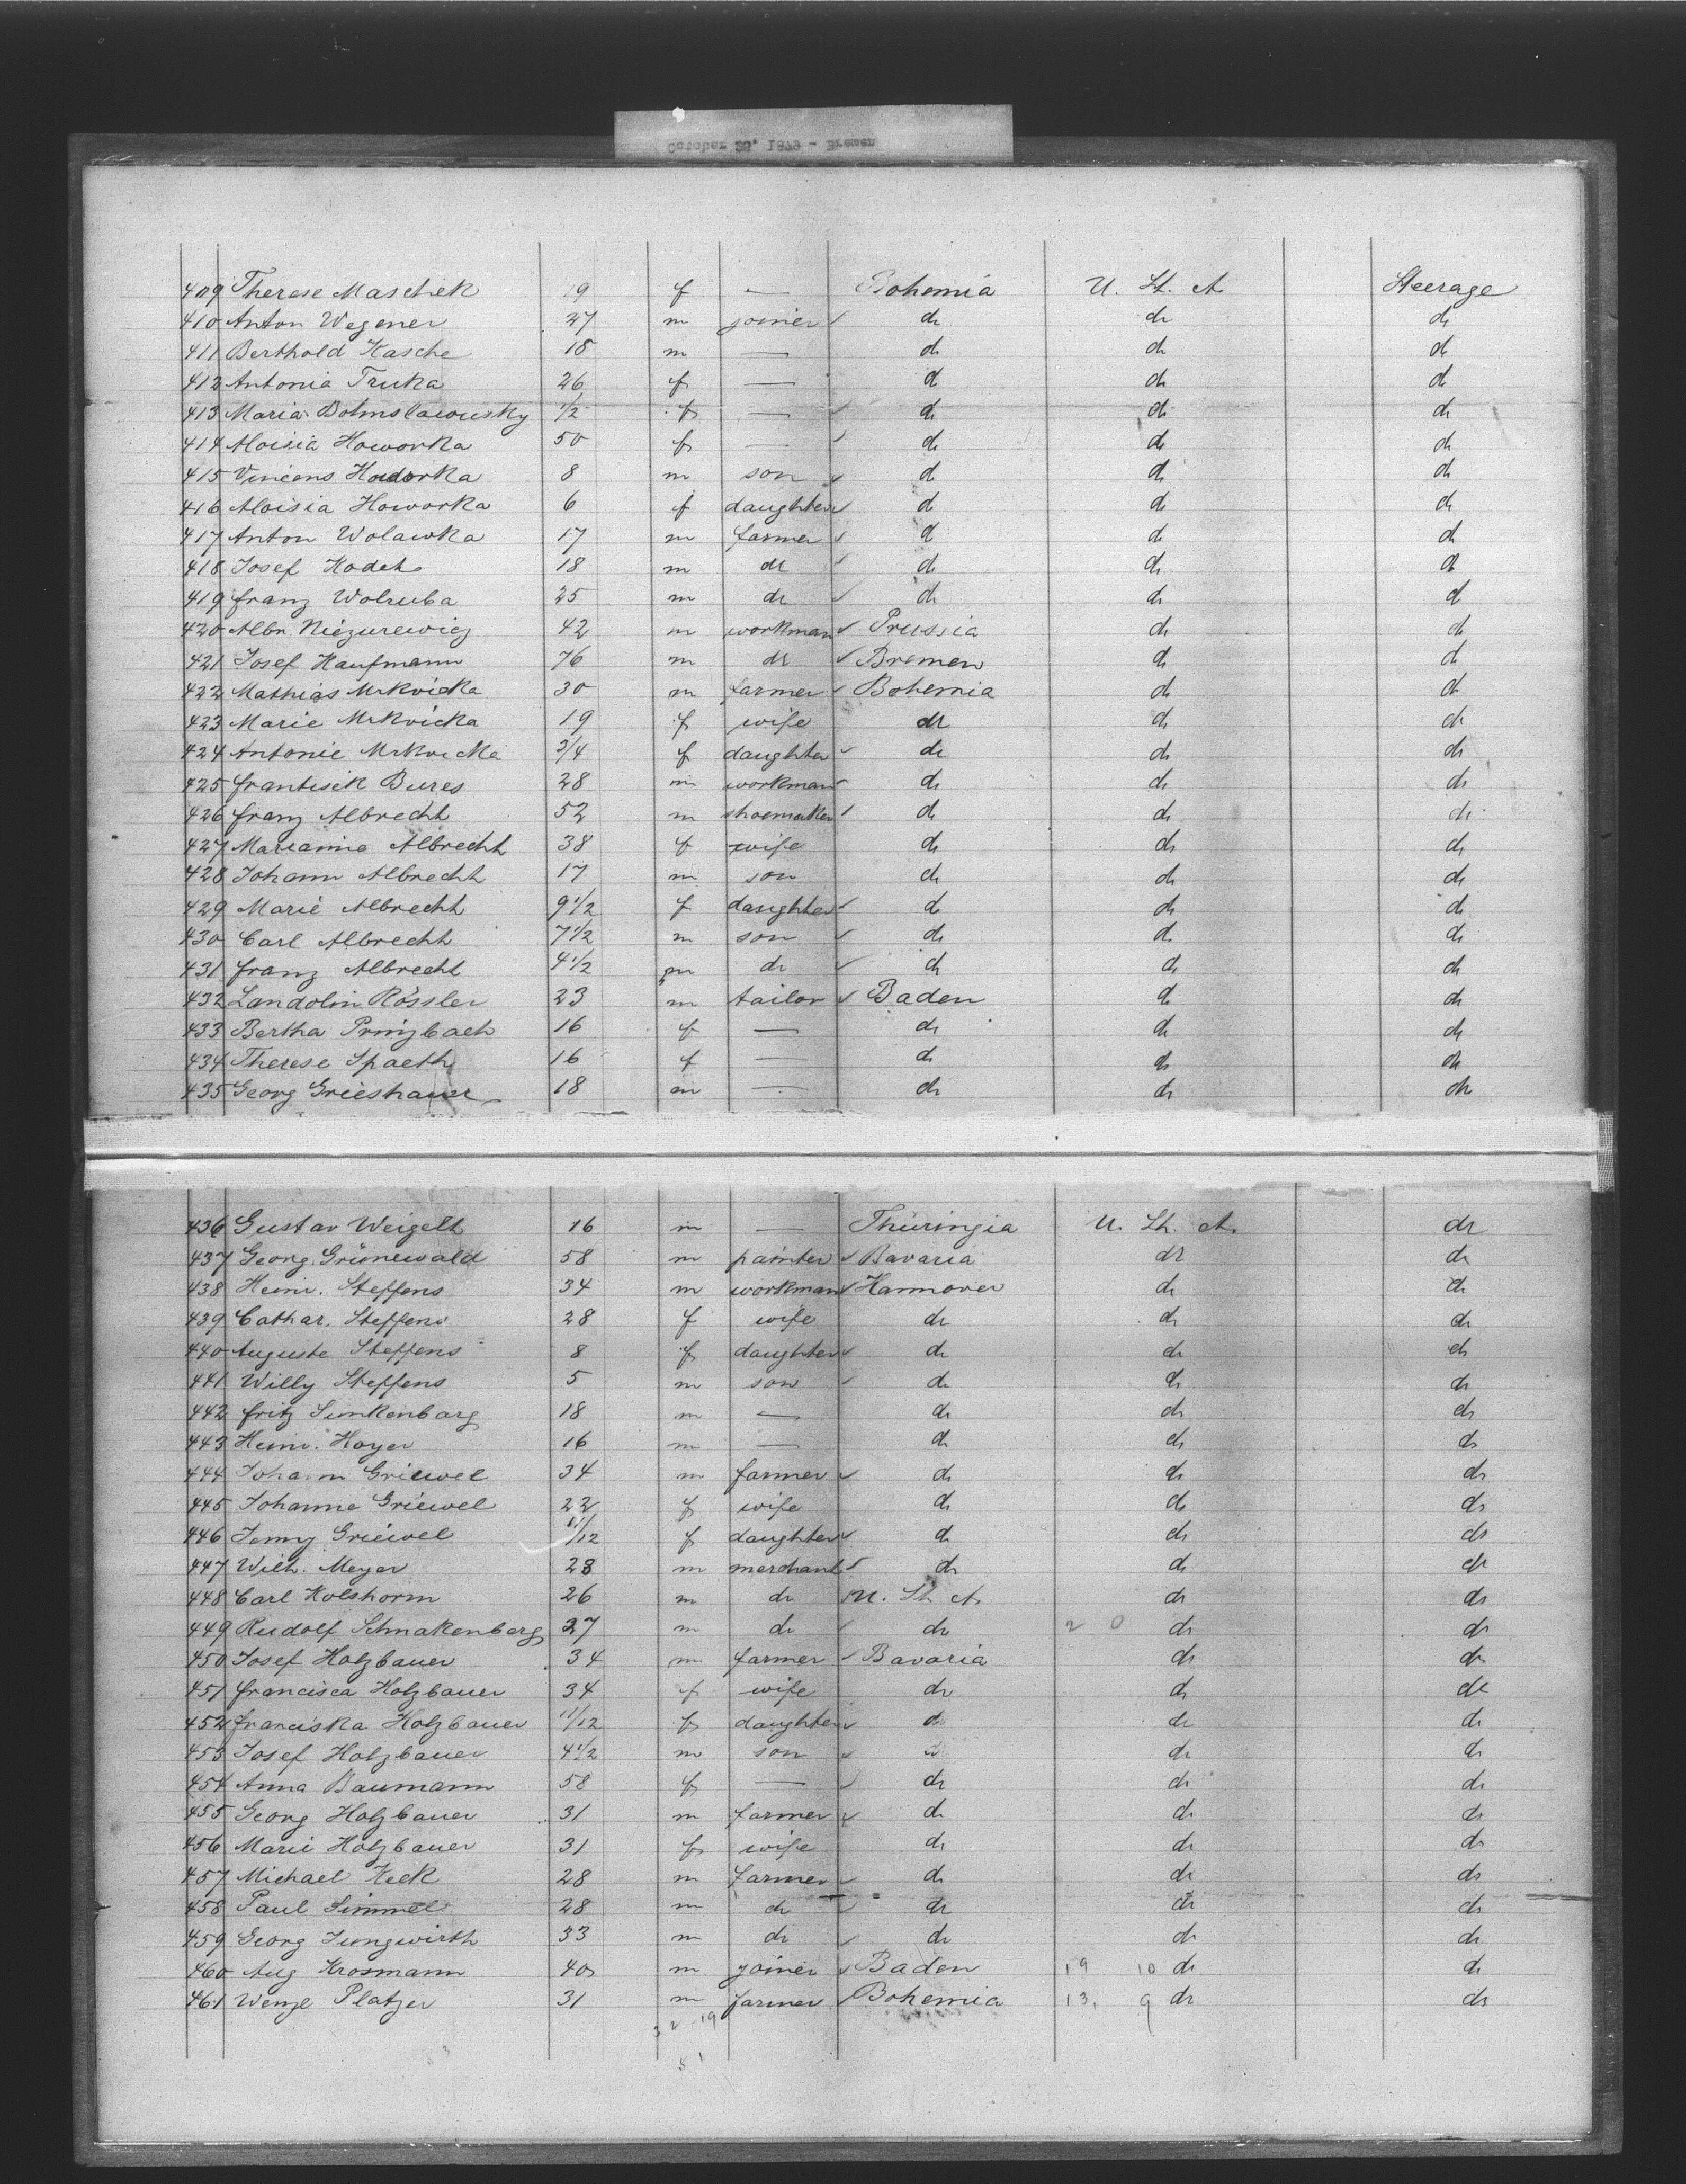 October 25, 1879 - Bremen
409 Therese Maschek 19 f — Bohemia U. St. A Steerage
410 Anton Wegener 27 m joiner do do do
411 Berthold Kasche 18 m — do do do
412 Antonia Truka 26 f — do do do
413 Maria Bohmslawusky 1/2 f — do do do
414 Aloisia Howorka 50 f — do do do
415 Vincens Howorka 8 m son do do do
416 Aloisia Howorka 6 f daughter do do do
417 Anton Wolawka 17 m farmer do do do
418 Josef Hodek 18 m do do do do
419 Franz Wolruba 25 m do do do do
420 Albr. Niezurewicz 42 m workman Prussia do do
421 Josef Kaufmann 76 m do Bremen do do
422 Mathias Mrkvicka 30 m farmer Bohemia do do
423 Marie Mrkvicka 19 f wife do do do
424 Antonie Mrkvicka 3/4 f daughter do do do
425 Frantisek Bures 28 m workman do do do
426 Franz Albrecht 52 m shoemaker do do do
427 Marianne Albrecht 38 f wife do do do
428 Johann Albrecht 17 m son do do do
429 Marie Albrecht 9 1/2 f daughter do do do
430 Carl Albrecht 7 1/2 m son do do do
431 Franz Albrecht 4 1/2 m do do do do
432 Landolin Rössler 23 m tailor Baden do do
433 Bertha Prinzbach 16 f — do do do
434 Therese Spaeth 16 f — do do do
435 Georg Grieshauer 18 m — do do do
436 Gustav Weigelt 16 m — Thüringia U. St. A. do
437 Georg Grünewald 58 m painter Bavaria do do
438 Heinr. Steffens 34 m workman Hannover do do
439 Cathar. Steffens 28 f wife do do do
440 Auguste Steffens 8 f daughter do do do
441 Willy Steffens 5 m son do do do
442 Fritz Sunkenbarg 18 m — do do do
443 Heinr. Hoyer 16 m — do do do
444 Johann Griewel 34 m farmer do do do
445 Johanne Griewel 22 f wife do do do
446 Jenny Griewel 11/12 f daughter do do do
447 Wilh. Meyer 28 m merchant do do do
448 Carl Holshorm 26 m do U. St. A. do do
449 Rudolf Schnakenberg 27 m do do 2 0 do do
450 Josef Holzbauer 34 m farmer Bavaria do do
451 Francisca Holzbauer 34 f wife do do do
452 Franciska Holzbauer 11/12 f daughter do do do
453 Josef Holzbauer 4 1/2 m son do do do
454 Anna Baumann 58 f — do do do
455 Georg Holzbauer 31 m farmer do do do
456 Marie Holzbauer 31 f wife do do do
457 Michael Keck 28 m farmer do do do
458 Paul Simmel 28 m do do do do
459 Georg Jungwirth 33 m do do do do
460 Aug Krosmann 40 m joiner Baden 19 10 do do
461 Wenze Platzer 31 m farmer Bohemia 13. 9 do do
32 19
51